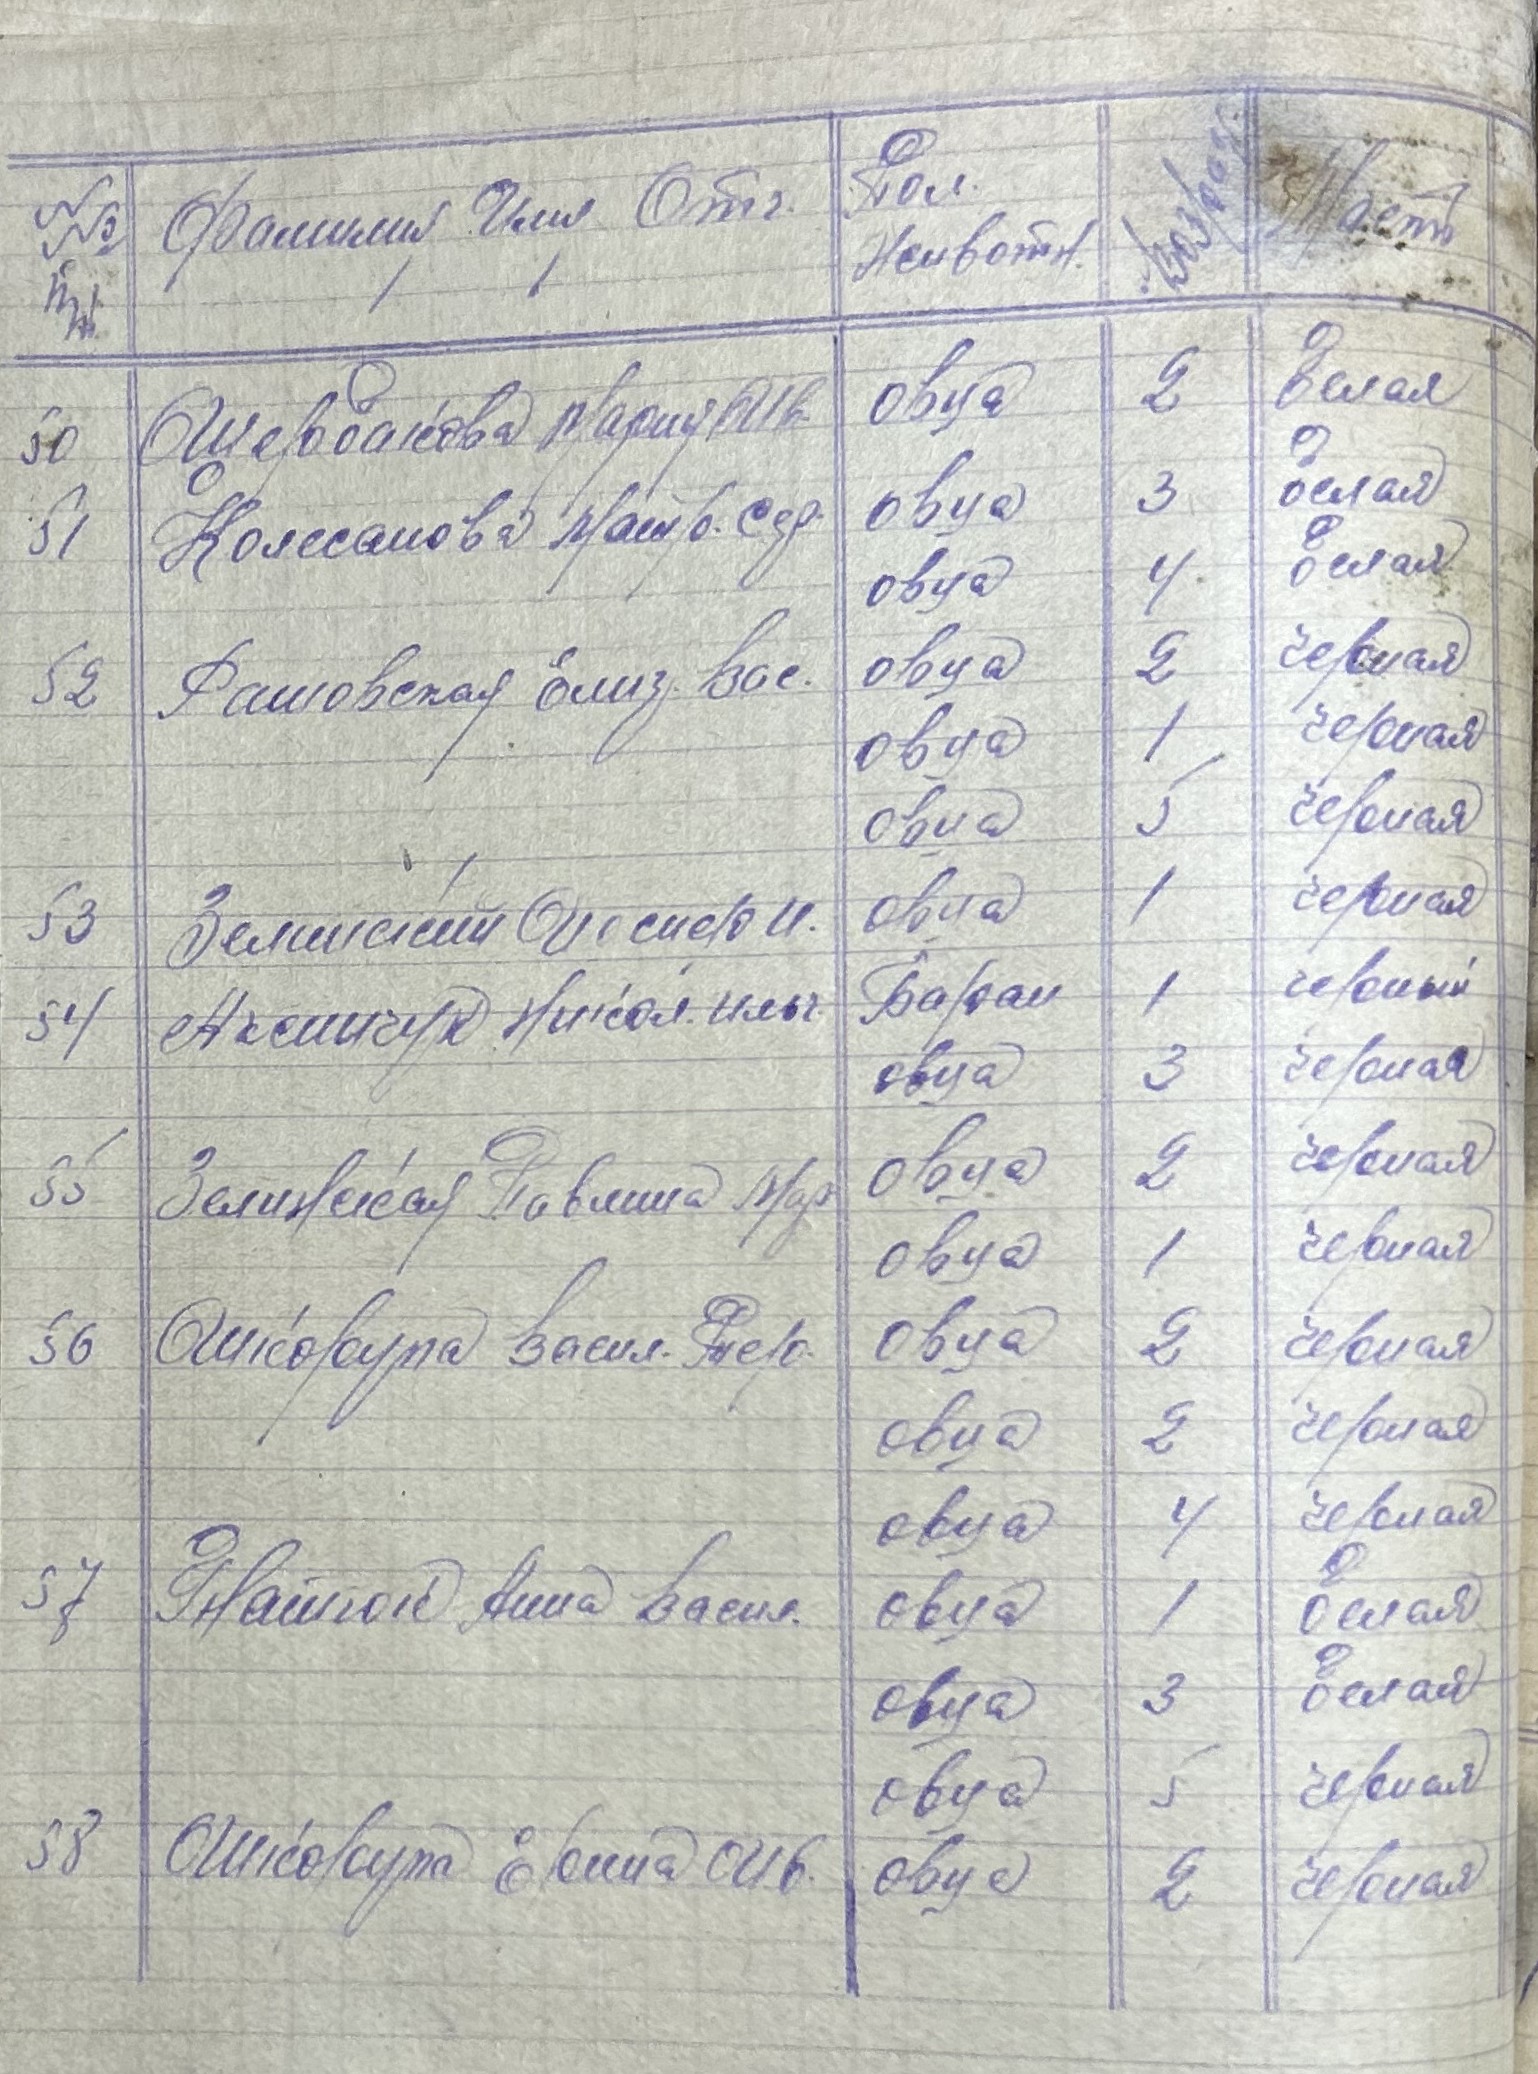 №№ Фамилия Имя Отч. Пол. Возраст Масть
пп. Животн.
50 Щербакова Мария Ив. овца 2 белая
51 Колесанова Матр. Сер. овца 3 белая
овца 4 белая
52 Рашовская Елиз. Вас. овца 2 черная
овца 1 черная
овца 5 черная
53 Зелинский Иосиф И. овца 1 черная
54 Аксинчук Никол. Ильич. Баран 1 черный
овца 3 черная
55 Зелинская Павлина Мар овца 2 черная
овца 1 черная
56 Шкорупа Васил. Пет. овца 2 черная
овца 2 черная
овца 4 черная
57 Гнатюк Анна Васил. овца 1 белая
овца 3 белая
овца 5 черная
58 Шкорупа Ерина Ив. овца 2 черная